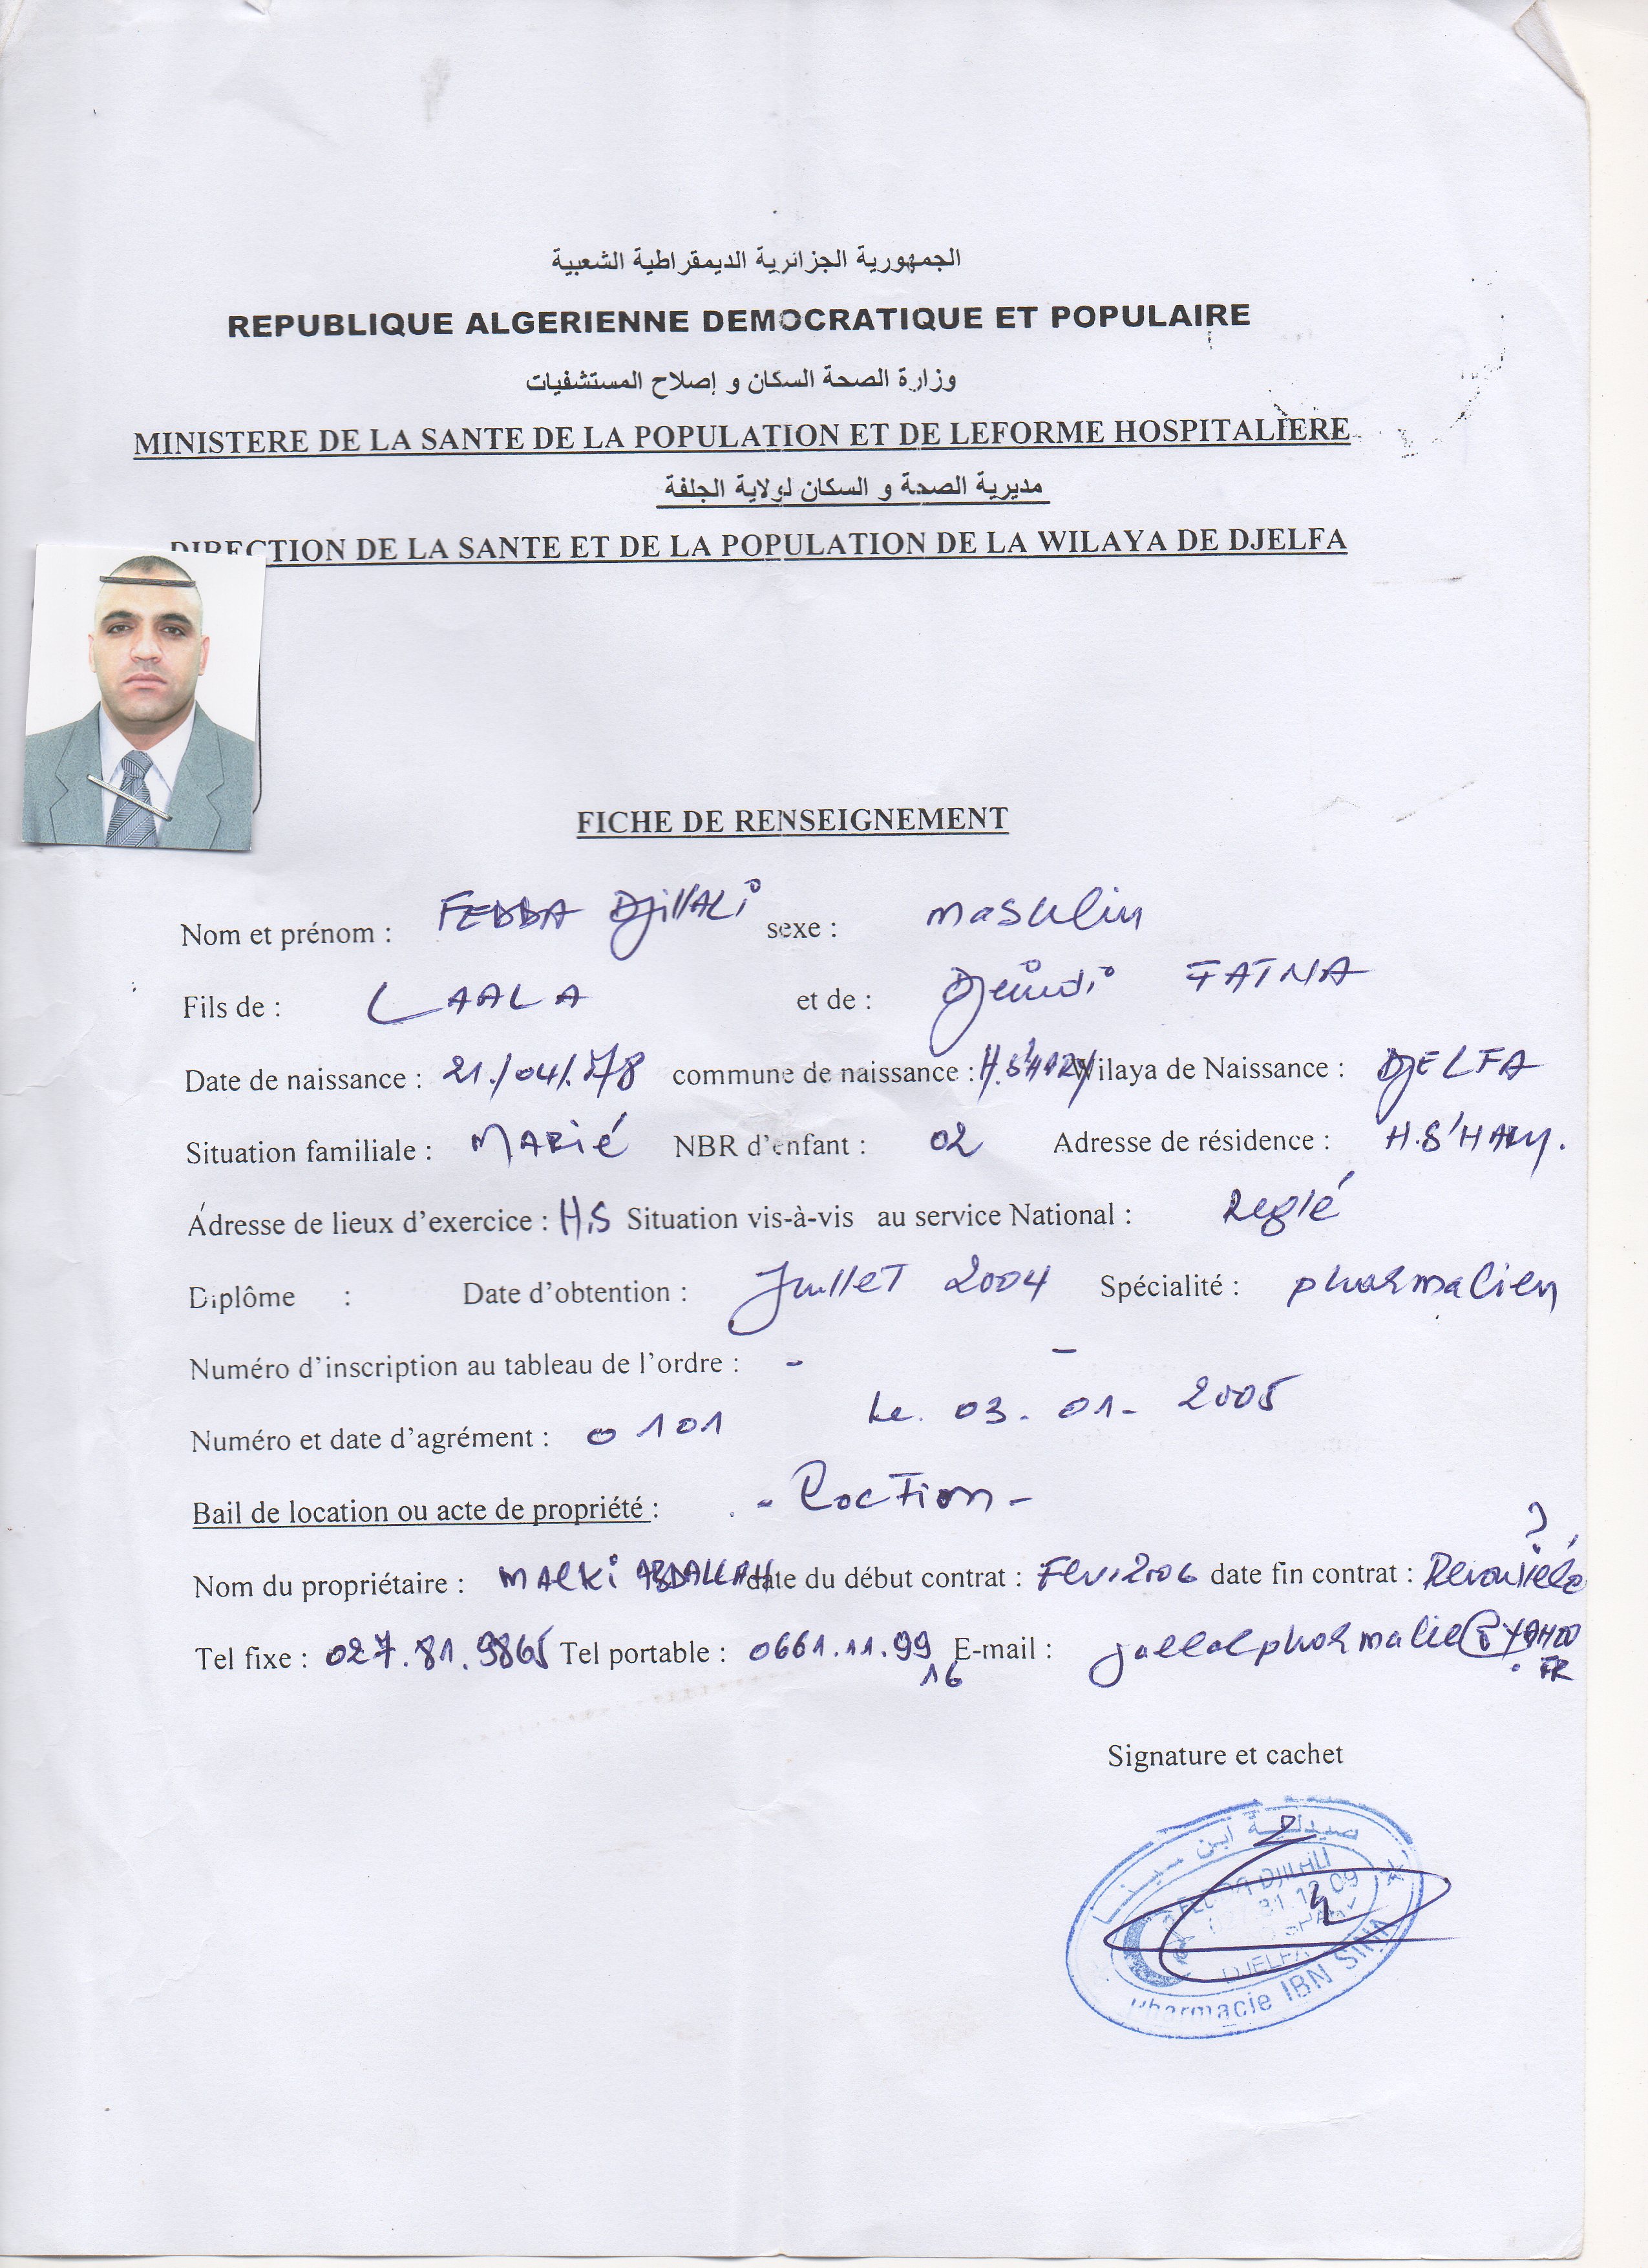 الجمهورية الجزائرية الديمقراطية الشعبية
REPUBLIQUE ALGERIENNE DEMOCRATIQUE ET POPULAIRE
وزارة الصحة السكان و إصلاح المستشفيات
MINISTERE DE LA SANTE DE LA POPULATION ET DE LEFORME HOSPITALIERE
مديرية الصحة و السكان لولاية الجلفة
DIRECTION DE LA SANTE ET DE LA POPULATION DE LA WILAYA DE DJELFA
FICHE DE RENSEIGNEMENT
Nom et prénom : FEDDA DjillALi sexe : masculin
Fils de : LAALA et de : Djeindi FATNA
Date de naissance : 21/04/.78 commune de naissance : H.S'HARY Wilaya de Naissance : DJELFA
Situation familiale : MARié NBR d'enfant : 02 Adresse de résidence : H.S'HARY.
Adresse de lieux d'exercice : H.S Situation vis-à-vis au service National : Reglé
Diplôme : Date d'obtention : JuilleT 2004 Spécialité : pharmacien
Numéro d'inscription au tableau de l'ordre : - -
Numéro et date d'agrément : 0101 Le. 03. 01- 2005
Bail de location ou acte de propriété : - LocTion -
Nom du propriétaire : MAlKi ABDALLAH date du début contrat : Fev.2006 date fin contrat : ?
Tel fixe : 027.81.9865 Tel portable : 0661.11.99 16 E-mail : jallalpharmacie@YAHOO.FR
Signature et cachet
صيدلية ابن سينا
FEDDA DJILALI
81.12.09
DJELFA
Pharmacie IBN SINA